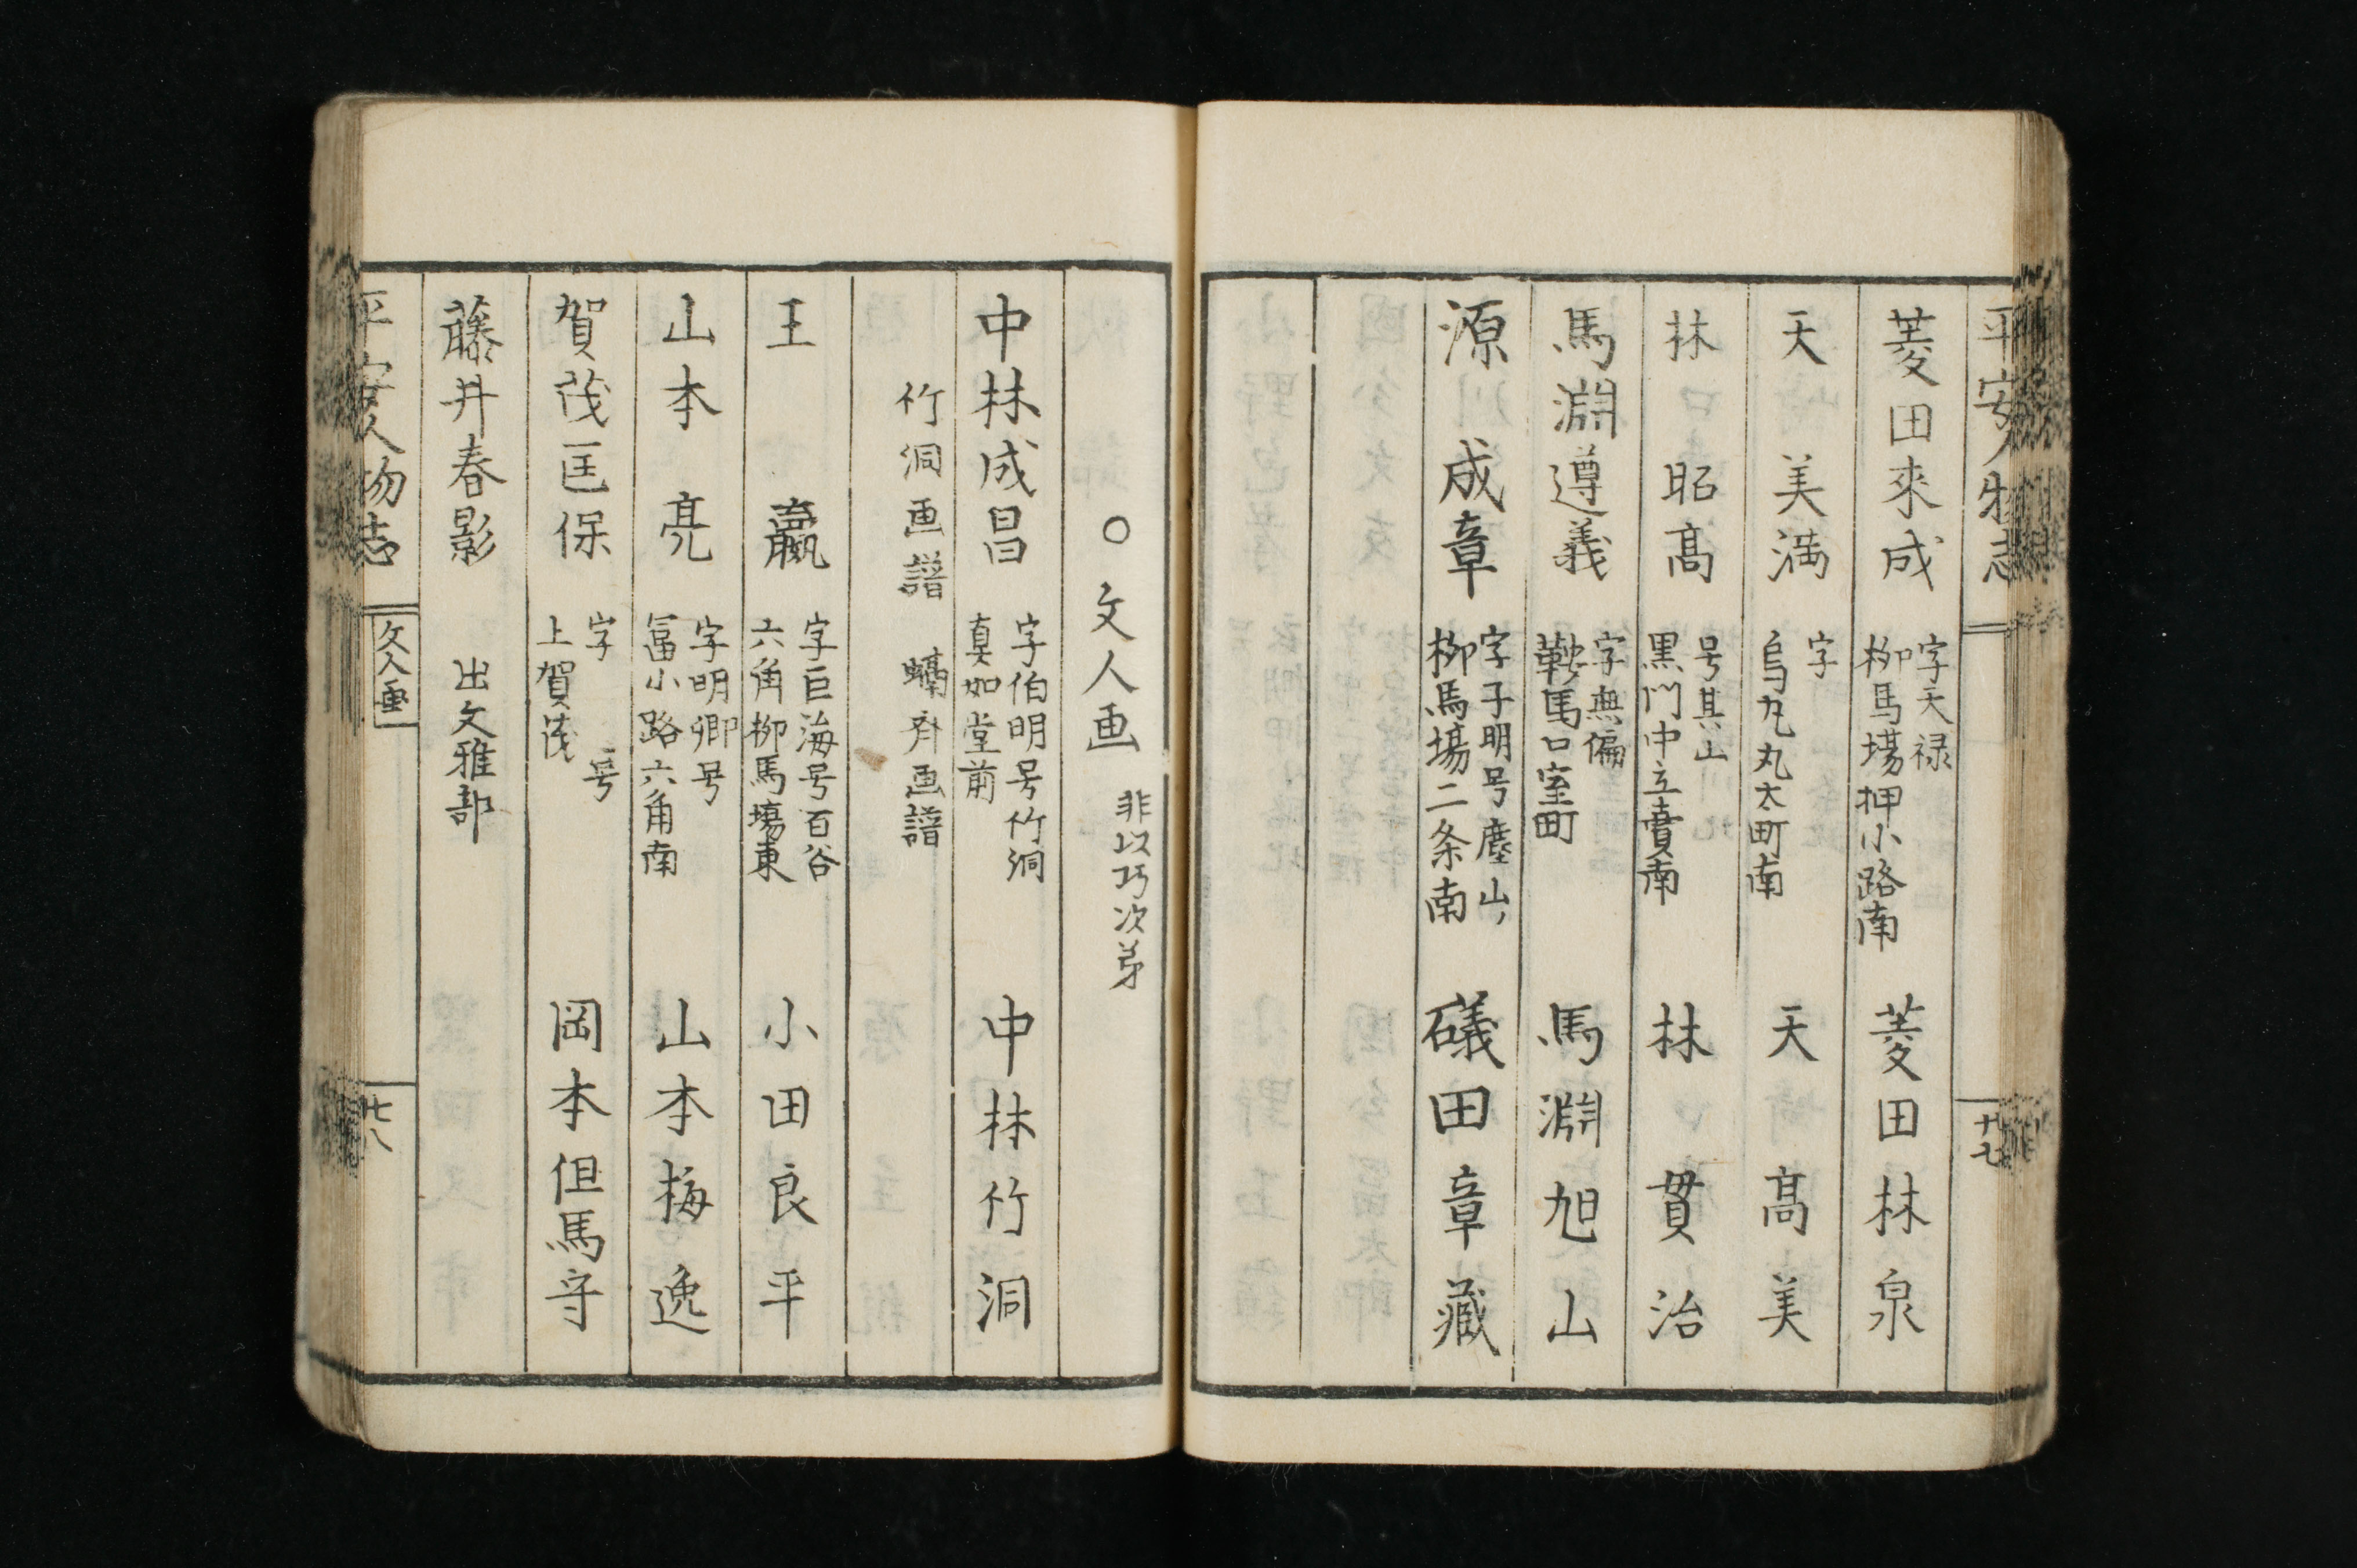 平安人物志
十七
菱田來成
字天禄
柳馬場押小路南
菱田林泉
天美満
字
烏丸丸太町南
天髙美
林昭髙
号其山
黒門中立賣南
林貫治
馬淵遵義
字無偏
鞍馬口室町
馬淵旭山
源成章
字子明号塵山
柳馬場二条南
礒田章藏
○文人画
非以巧次弟
中林成昌
字伯明号竹洞
真如堂前
中林竹洞
竹洞画譜
蠨斉画譜
王
字巨海号百谷
六角柳馬場東
小田良平
山本亮
字明卿号
冨小路六角南
山本梅逸
賀茂匡保
字号
上賀茂
岡本但馬守
藤井春影
出文雅部
平安人物志
文人画
十八